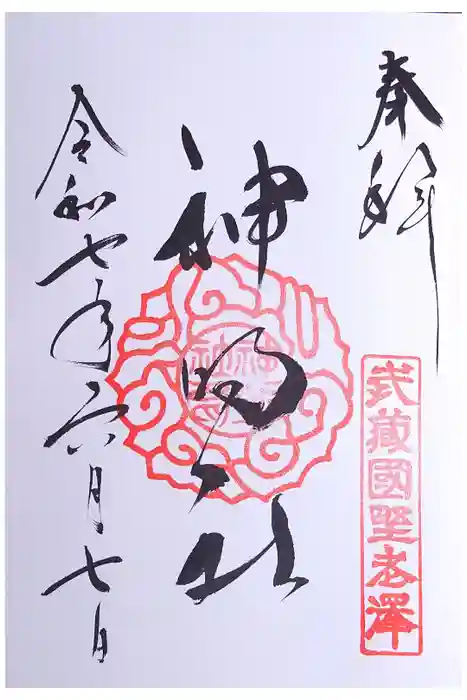 奉拝
武蔵國野老澤
神明社
令和七年六月七日